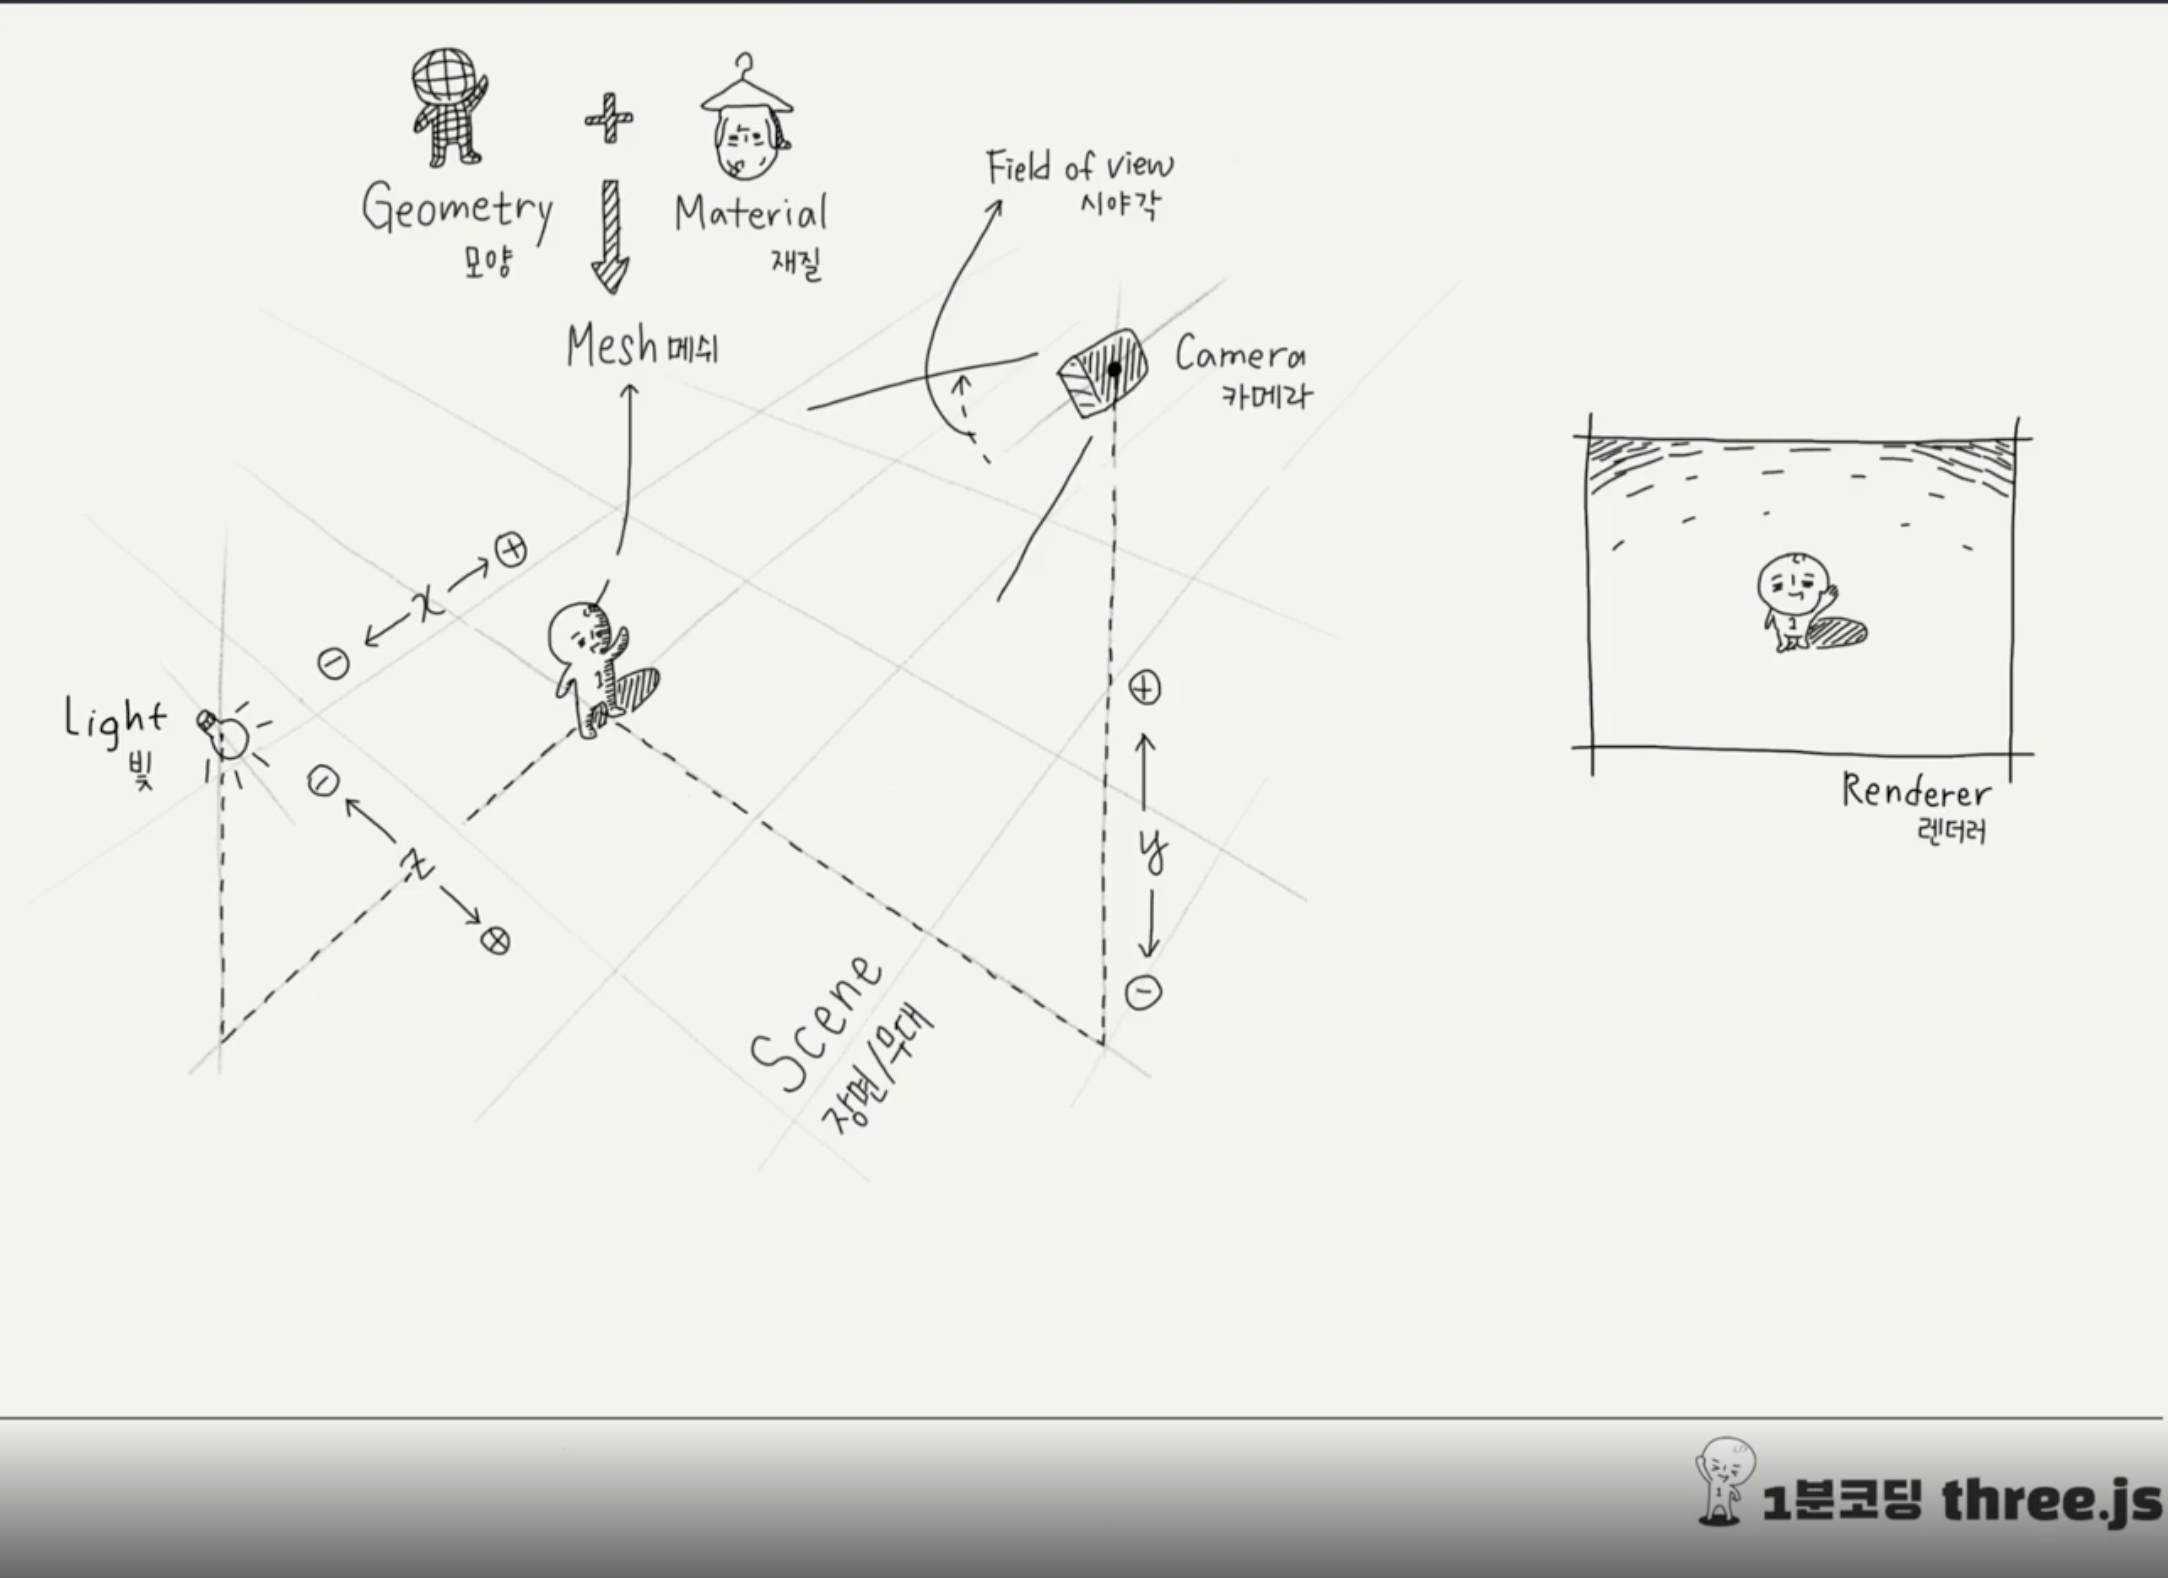 Geometry
모양
+
Material
재질
Mesh 메쉬
Field of view
시야각
Camera
카메라
+
x
-
Light
빛
-
z
+
1
+
y
-
Scene
장면/무대
1
Renderer
렌더러
1
1분코딩 three.js